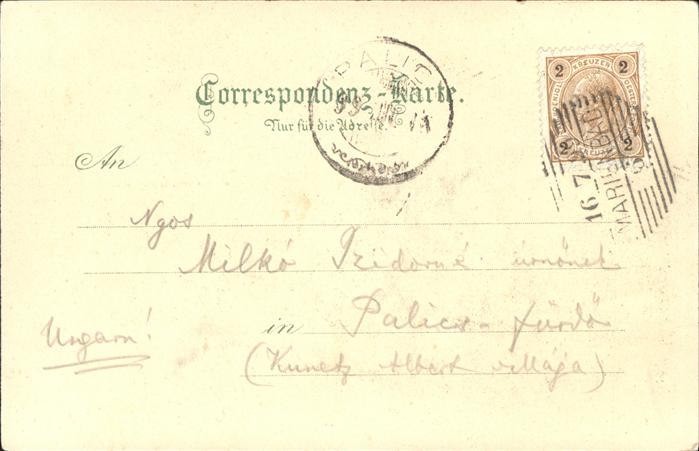 PALICS
Correspondenz-Karte.
Nur für die Adresse.
2 KREUZER 2
2 KREUZER 2
16 7
MARIENBAD
An
Ngos
Milkó Izidorné úrnőnek
in Palics-fürdő
Ungarn!
(Kunetz Albert villája)